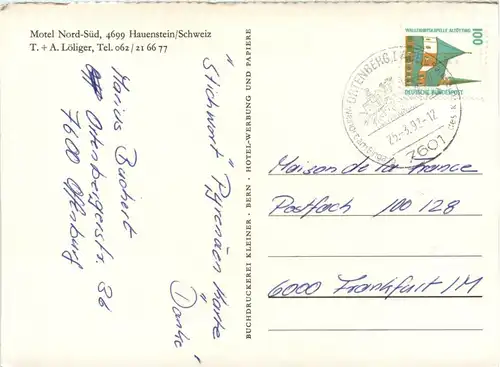 Motel Nord-Süd, 4699 Hauenstein/Schweiz
T. + A. Löliger, Tel. 062/21 66 77
Marius Bachert
Ortenbergerstr. 36
7600 Offenburg
"Stichwort" Pyrenäen Karte
Danke
BUCHDRUCKEREI KLEINER - BERN - HOTEL-WERBUNG UND PAPIERE
WALLFAHRTSKAPELLE ALTÖTTING
100
DEUTSCHE BUNDESPOST
ORTENBERG,
25.-3.92-12
7601
des
Maison de la France
Postfach 100 128
6000 Frankfurt/M